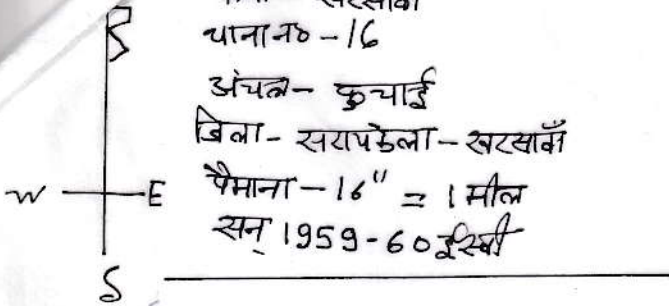 थाना नं० - 16
अंचल - कुचाई
जिला - सरायकेला - खरसावाँ
W E पैमाना - 16" = 1 मील
सन् 1959-60 ईस्वी
S